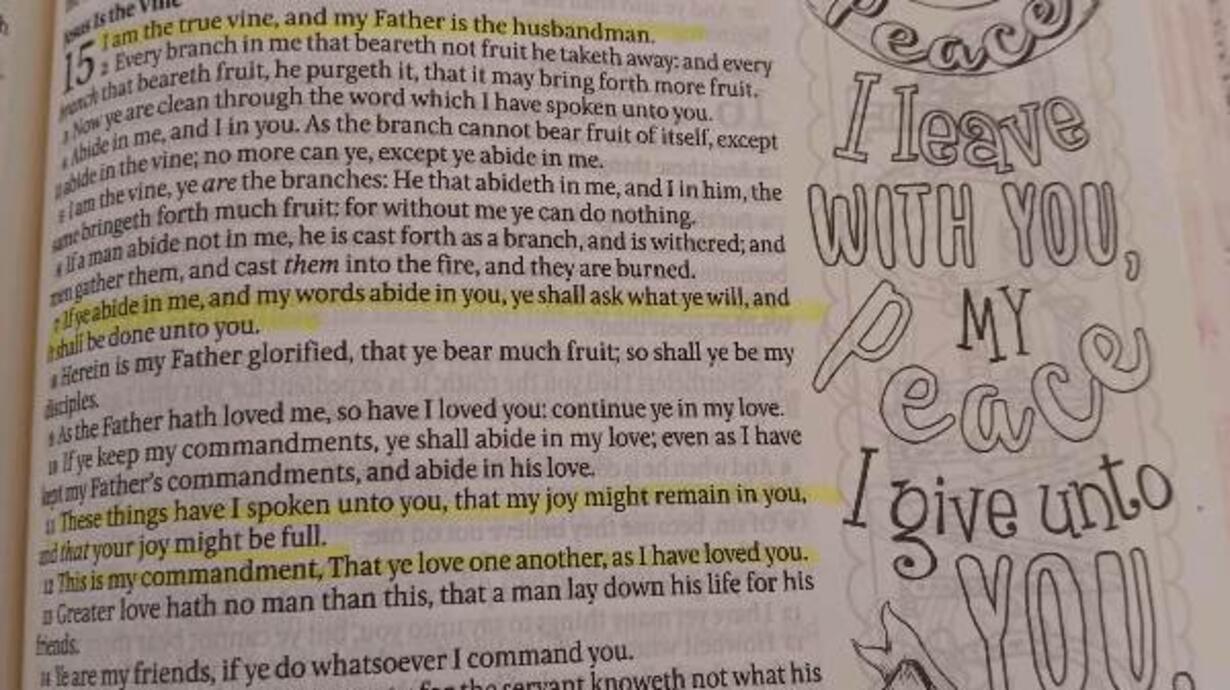 Jesus Is the Vine
15 I am the true vine, and my Father is the husbandman.
2 Every branch in me that beareth not fruit he taketh away: and every
branch that beareth fruit, he purgeth it, that it may bring forth more fruit.
3 Now ye are clean through the word which I have spoken unto you.
4 Abide in me, and I in you. As the branch cannot bear fruit of itself, except
it abide in the vine; no more can ye, except ye abide in me.
5 I am the vine, ye are the branches: He that abideth in me, and I in him, the
same bringeth forth much fruit: for without me ye can do nothing.
6 If a man abide not in me, he is cast forth as a branch, and is withered; and
men gather them, and cast them into the fire, and they are burned.
7 If ye abide in me, and my words abide in you, ye shall ask what ye will, and
it shall be done unto you.
8 Herein is my Father glorified, that ye bear much fruit; so shall ye be my
disciples.
9 As the Father hath loved me, so have I loved you: continue ye in my love.
10 If ye keep my commandments, ye shall abide in my love; even as I have
kept my Father's commandments, and abide in his love.
11 These things have I spoken unto you, that my joy might remain in you,
and that your joy might be full.
12 This is my commandment, That ye love one another, as I have loved you.
13 Greater love hath no man than this, that a man lay down his life for his
friends.
14 Ye are my friends, if ye do whatsoever I command you.
for the servant knoweth not what his
Peace
I leave
WITH YOU,
MY
Peace
I give unto
YOU.